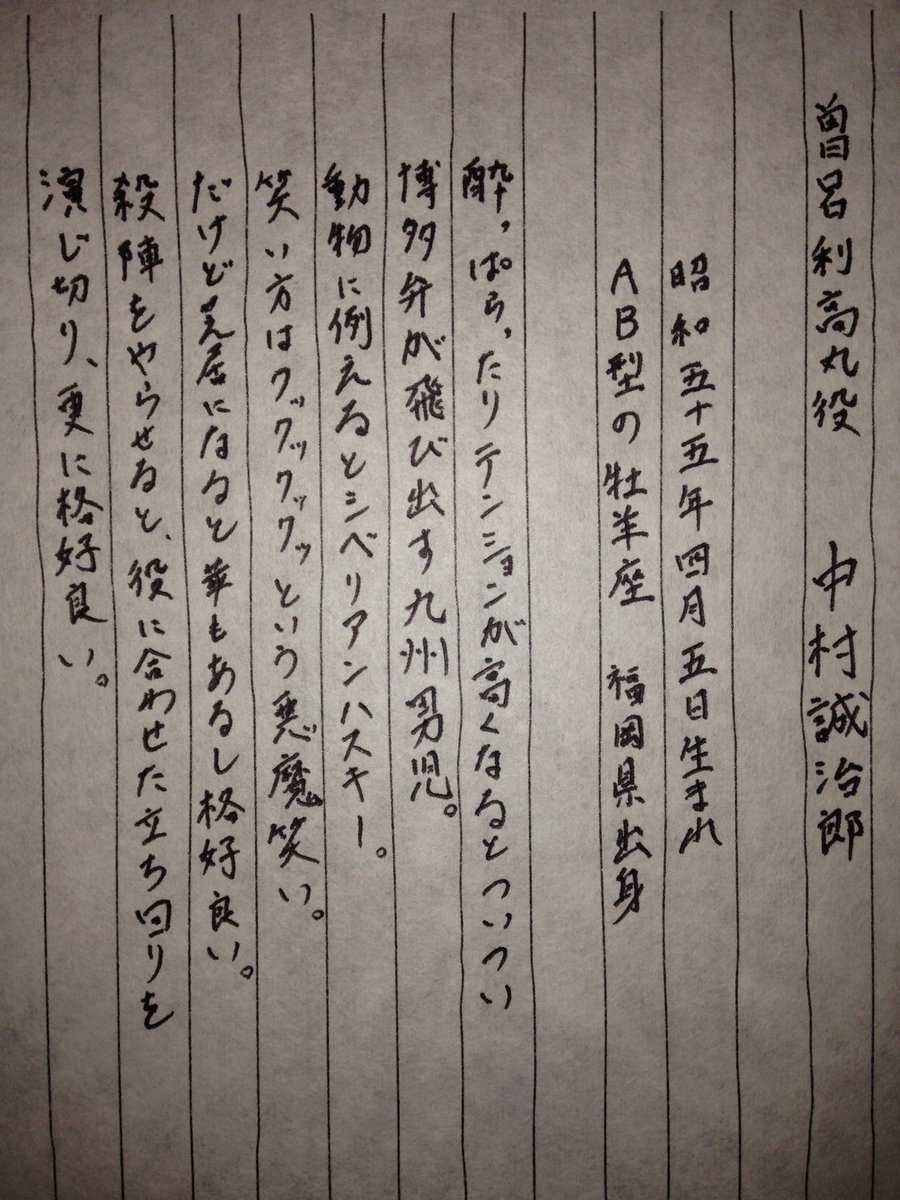 曽呂利高丸役　中村誠治郎
昭和五十五年四月五日生まれ
AB型の牡羊座　福岡県出身
酔っぱらったりテンションが高くなるとついつい
博多弁が飛び出す九州男児。
動物に例えるとシベリアンハスキー。
笑い方はクックックックッという悪魔笑い。
だけど芝居になると華もあるし格好良い。
殺陣をやらせると、役に合わせた立ち回りを
演じ切り、更に格好良い。